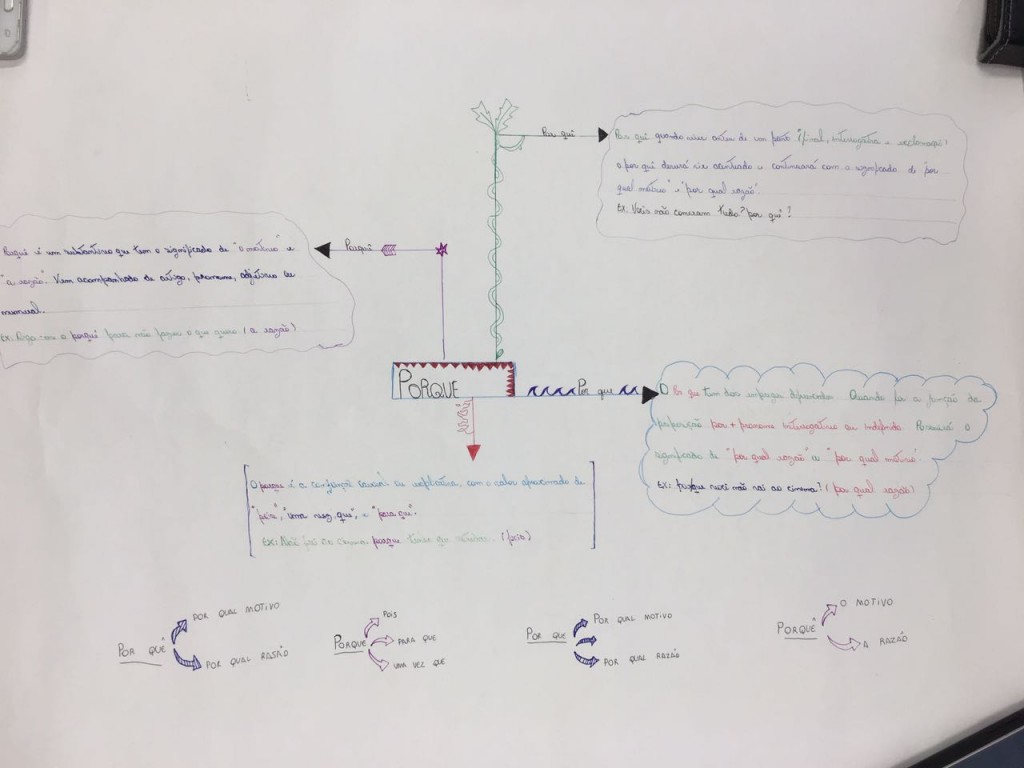 Por quê
Por quê quando vier antes de um ponto (final, interrogativo e exclamação)
o por quê deverá vir acentuado e continuará com o significado de "por
qual motivo" e "por qual razão".
Ex: Vocês não comeram tudo? por quê?
Porquê
Porquê é um substantivo que tem o significado de "o motivo" e
"a razão". Vem acompanhado de artigo, pronome, adjetivo ou
numeral.
Ex: Diga-me o porquê para não fazer o que quero (a razão)
PORQUE
Por que
O Por que tem dois empregos diferentes. Quando for a junção da
preposição por + pronome interrogativo ou indefinido. Possuirá o
significado de "por qual razão" ou "por qual motivo".
Ex: porque você não vai ao cinema? (por qual razão)
O porque é a conjunção causal ou explicativa, com o valor aproximado de
"pois", "uma vez que", e "para que".
Ex: Não fui ao cinema porque tenho que estudar. (pois)
POR QUÊ
POR QUAL MOTIVO
POR QUAL RASÃO
PORQUE
POIS
PARA QUE
UMA VEZ QUE
POR QUE
POR QUAL MOTIVO
POR QUAL RAZÃO
PORQUÊ
O MOTIVO
A RAZÃO